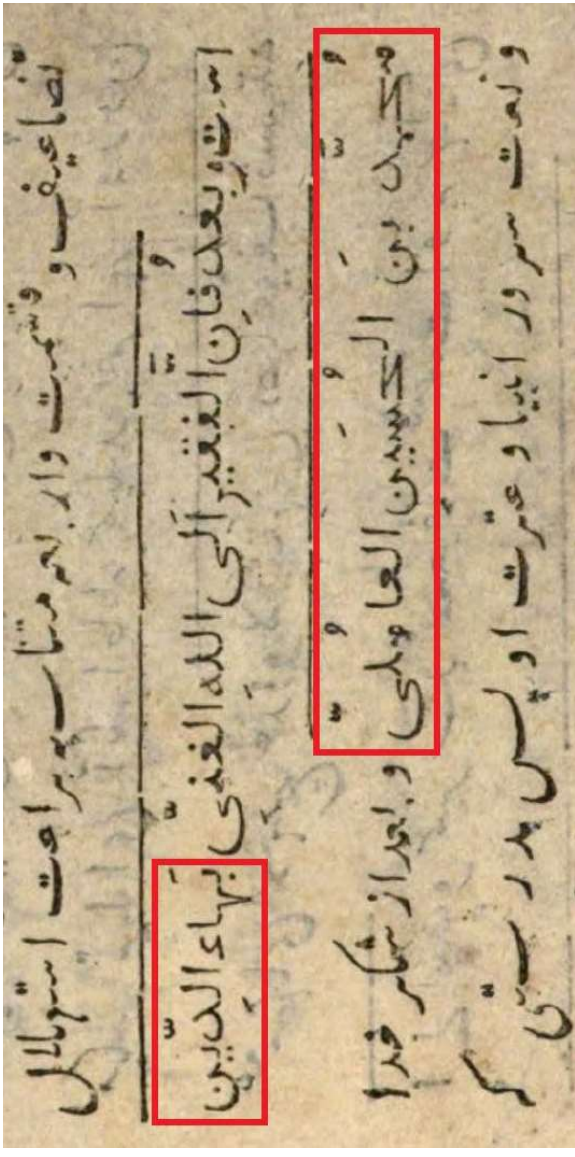 تضاعیف و قسمت و اربعه متناسبه براعت استهلال
است وبعد فاِن الفقیر اَلی الله الغنیّ بَهاء الدّین
محمّد بنَ الحسَین العاملیّ و بعد از شکر خدا
و نعت سرور انبیا و عترت او پس بدرستی که